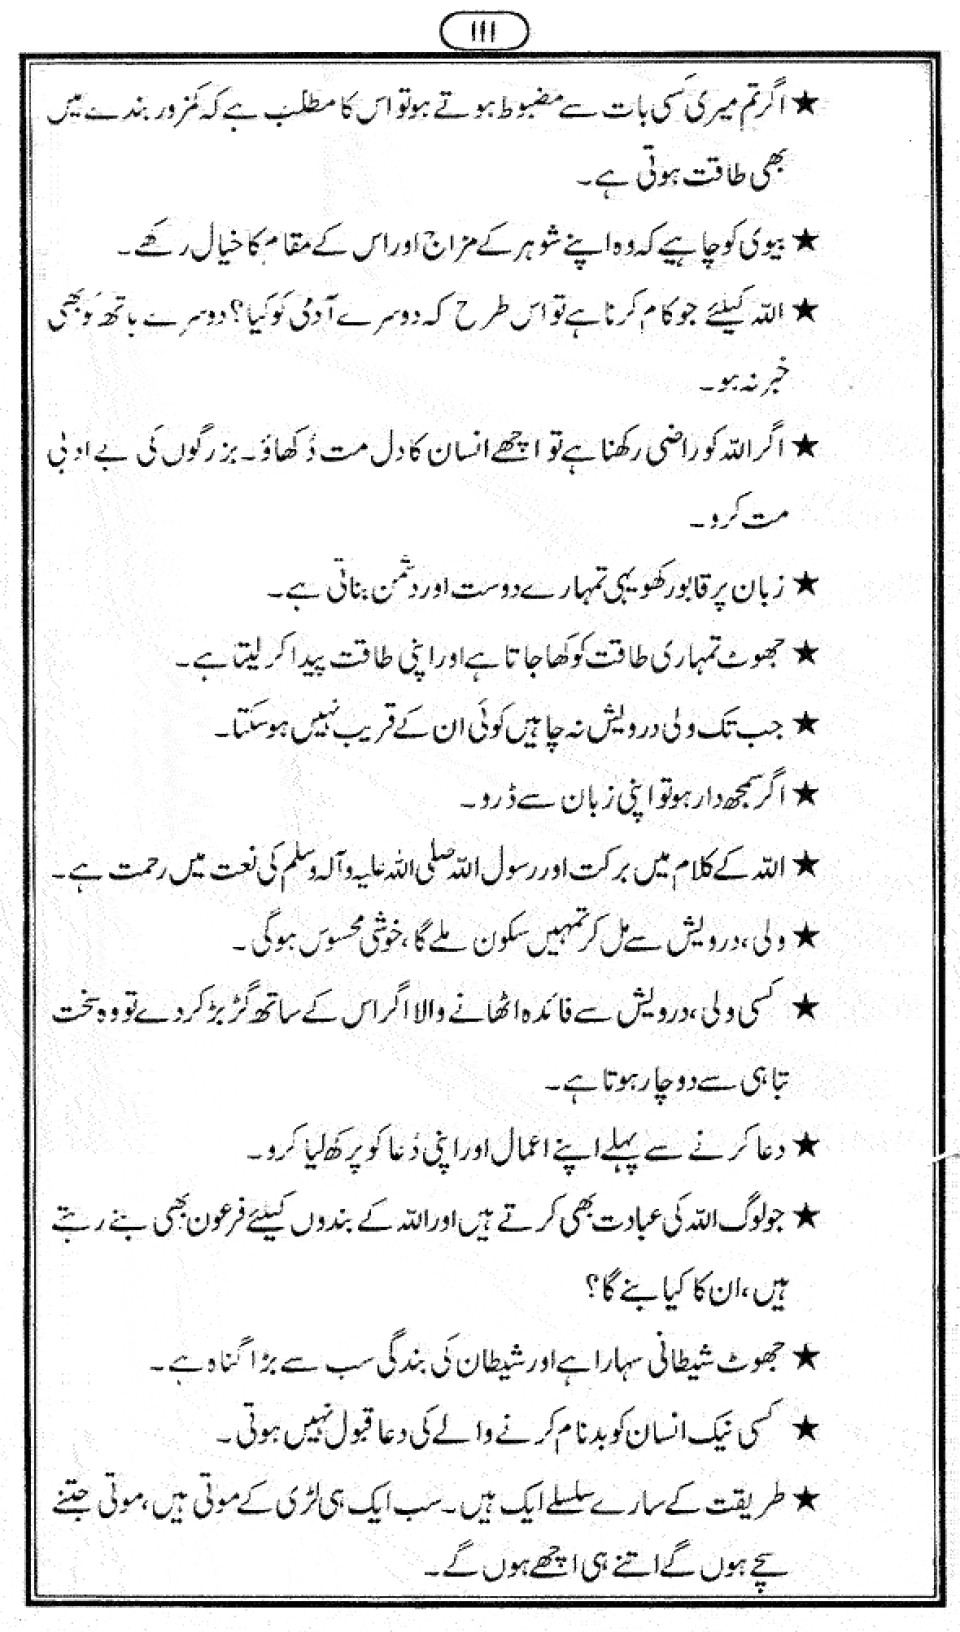 ۱۱۱
★ اگر تم میری کسی بات سے مضبوط ہوتے ہو تو اس کا مطلب ہے کہ کمزور بندے میں
بھی طاقت ہوتی ہے۔
★ بیوی کو چاہیے کہ وہ اپنے شوہر کے مزاج اور اس کے مقام کا خیال رکھے۔
★ اللہ کیلئے جو کام کرنا ہے تو اس طرح کہ دوسرے آدمی کو کیا؟ دوسرے ہاتھ کو بھی
خبر نہ ہو۔
★ اگر اللہ کو راضی رکھنا ہے تو اچھے انسان کا دل مت دُکھاؤ۔ بزرگوں کی بے ادبی
مت کرو۔
★ زبان پر قابو رکھو یہی تمہارے دوست اور دشمن بناتی ہے۔
★ جھوٹ تمہاری طاقت کو کھا جاتا ہے اور اپنی طاقت پیدا کر لیتا ہے۔
★ جب تک ولی درویش نہ چاہیں کوئی ان کے قریب نہیں ہو سکتا۔
★ اگر سمجھ دار ہو تو اپنی زبان سے ڈرو۔
★ اللہ کے کلام میں برکت اور رسول اللہ صلی اللہ علیہ وآلہ وسلم کی نعت میں رحمت ہے۔
★ ولی، درویش سے مل کر تمہیں سکون ملے گا، خوشی محسوس ہوگی۔
★ کسی ولی، درویش سے فائدہ اٹھانے والا اگر اس کے ساتھ گڑبڑ کر دے تو وہ سخت
تباہی سے دوچار ہوتا ہے۔
★ دعا کرنے سے پہلے اپنے اعمال اور اپنی دُعا کو پرکھ لیا کرو۔
★ جو لوگ اللہ کی عبادت بھی کرتے ہیں اور اللہ کے بندوں کیلئے فرعون بھی بنے رہتے
ہیں، ان کا کیا بنے گا؟
★ جھوٹ شیطانی سہارا ہے اور شیطان کی بندگی سب سے بڑا گناہ ہے۔
★ کسی نیک انسان کو بدنام کرنے والے کی دعا قبول نہیں ہوتی۔
★ طریقت کے سارے سلسلے ایک ہیں۔ سب ایک ہی لڑی کے موتی ہیں، موتی جتنے
سچے ہوں گے اتنے ہی اچھے ہوں گے۔